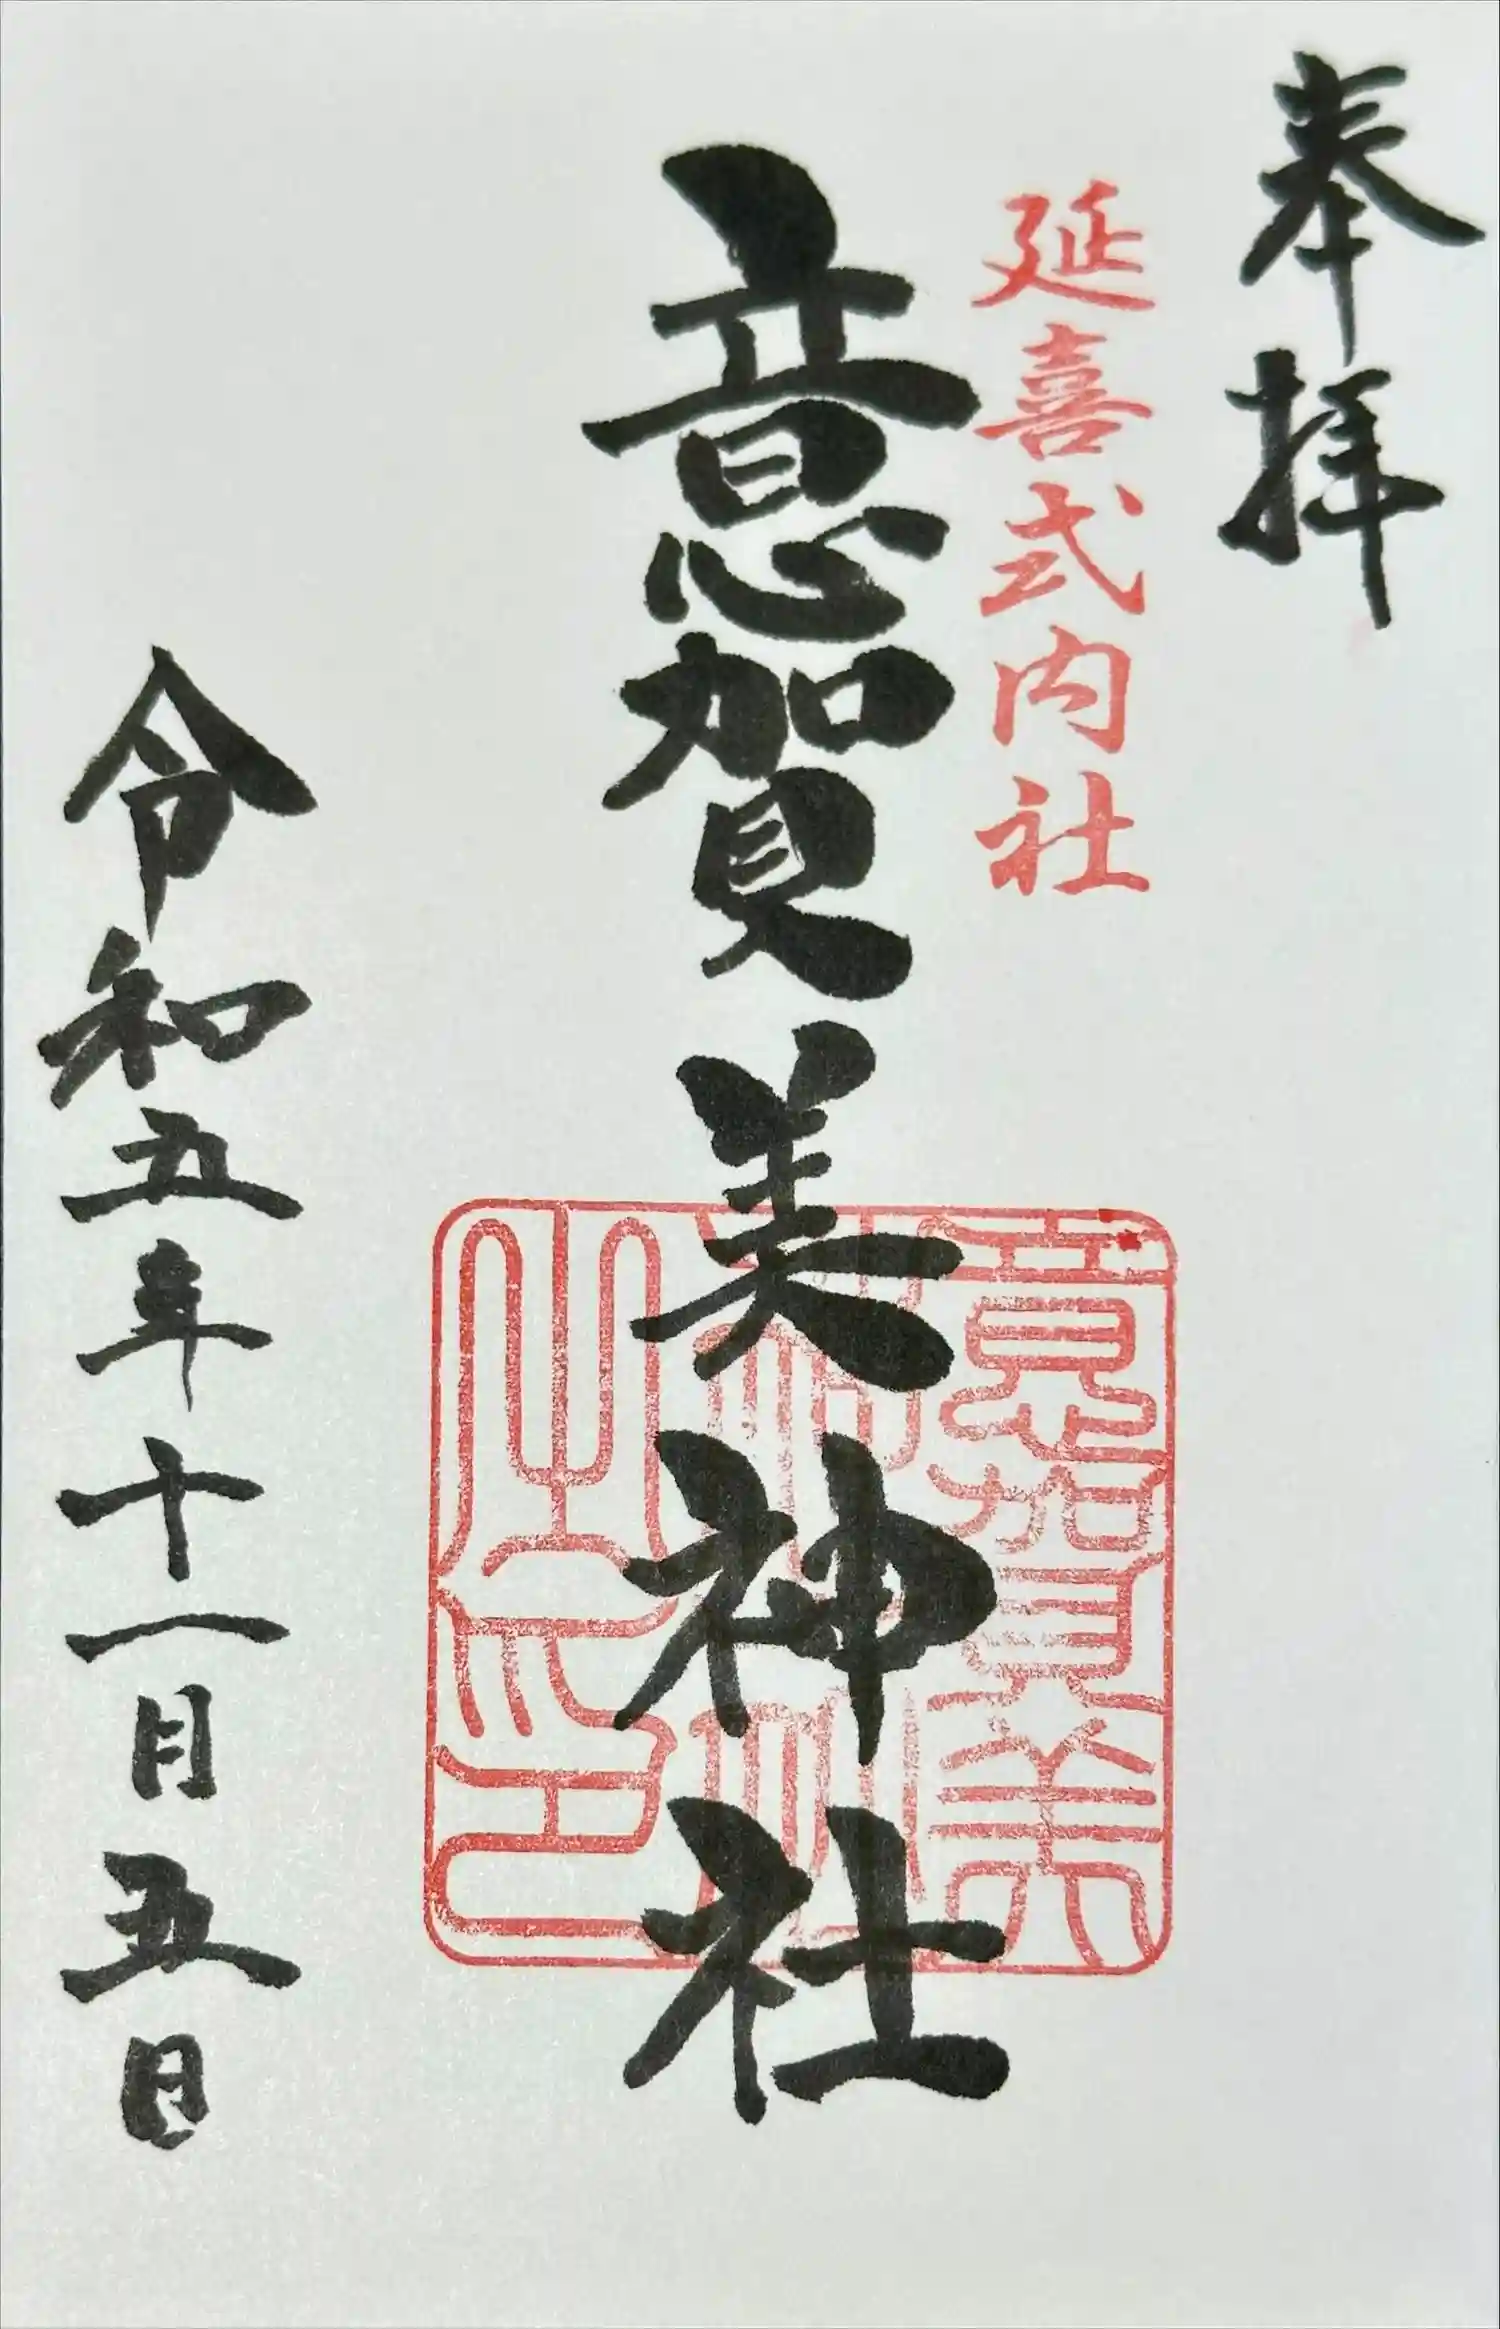 奉拝
延喜式内社
意賀美神社
意賀美
神社
之印
令和五年十一月五日